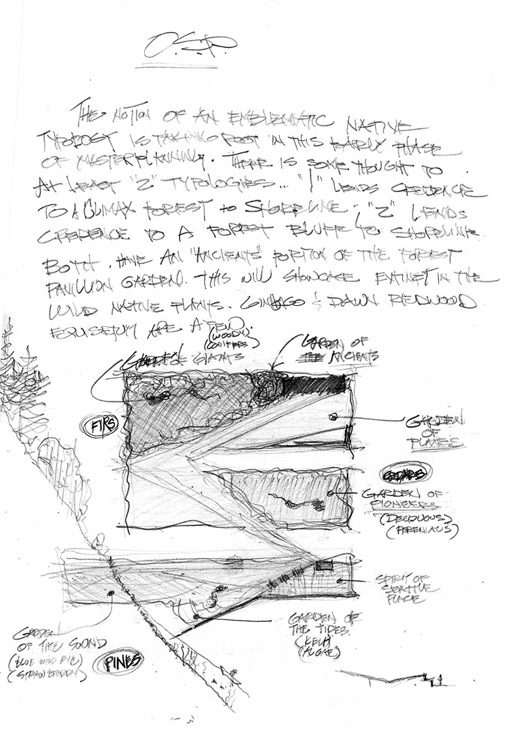 O.S.P.
THE NOTION OF AN EMBLEMATIC NATIVE
FOREST IS TAKING ROOT IN THIS EARLY PHASE
OF MASTER PLANNING. THERE IS SOME THOUGHT TO
AT LEAST "2" TYPOLOGIES... "1" LENDS CREDENCE
TO A CLIMAX FOREST to SHORELINE; "2" LENDS
CREDENCE TO A FOREST BLUFF TO SHORELINE.
BOTH HAVE AN "ANCIENTS" PORTION OF THE FOREST
PAVILION GARDEN. THIS WILL SHOWCASE EXTINCT IN THE
WILD NATIVE PLANTS. GINKGO & DAWN REDWOOD
EQUISETUM ARE A FEW.
(WOODY)
(CONIFERS)
GIANTS
GARDEN OF
ANCIENTS
FIRS
GARDEN
OF
PLACE
CEDARS
GARDEN OF
PIONEERS
(DECIDUOUS)
(PERENNIALS)
SPIRIT OF
SEATTLE
PLACE
GARDEN
OF THE SOUND
(BLUE WILD RYE)
(STRAWBERRY)
PINES
GARDEN OF
THE TIDES
(KELP)
(ALGAE)